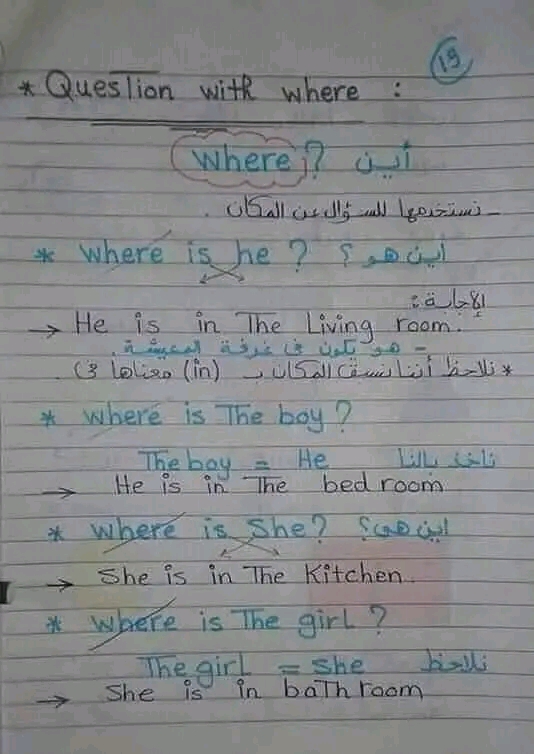 19
* Question with where :
where ? أين
- نستخدمها للسؤال عن المكان .
* where is he ? أين هو ؟
الإجابة :
→ He is in The Living room.
- هو يكون فى غرفة المعيشة .
* نلاحظ أننا نسبق المكان بـ (in) معناها فى .
* where is The boy ?
The boy = He ناخد بالنا
→ He is in The bed room
* where is She? اين هى؟
→ She is in The Kitchen.
* where is The girl ?
The girl = she نلاحظ
→ She is in bath room